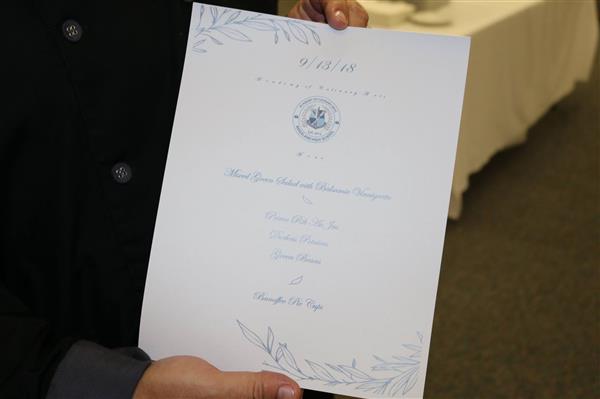 9/13/18
Academy of Culinary Arts
Menu
Mixed Green Salad with Balsamic Vinaigrette
Prime Rib Au Jus
Duchess Potatoes
Green Beans
Banoffee Pie Cups